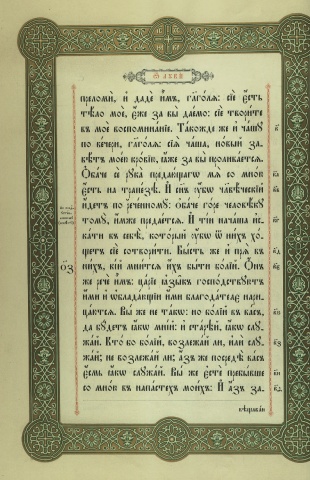 Ѿ ЛꙊКИ
преломи́, и҆ дадѐ и҆̀мъ, гл҃го́лѧ: сїѐ є҆́сть
тѣ́ло моѐ, є҆́же за вы̀ дае́мо: сїѐ твори́те
въ моѐ воспомина́нїе. Та́кожде же и҆ ча́шꙋ
по ве́чери, гл҃го́лѧ: сїѧ̀ ча́ша, но́вый за-
вѣ́тъ мое́ю кро́вїю, ꙗ҆́же за вы̀ пролива́етсѧ.
Ѻ҆ба́че сѐ рꙋка̀ предаю́щагѡ мѧ̀ со мно́ю
є҆́сть на трапе́зѣ. И҆ сн҃ъ ᲂу҆́бѡ чл҃вѣ́ческїй
и҆́детъ по рече́нномꙋ: ѻ҆ба́че го́ре человѣ́кꙋ
томꙋ̀, и҆́мже предае́тсѧ. И҆ ті́и нача́ша и҆с-
ка́ти въ себѣ̀, кото́рый ᲂу҆́бѡ ѿ ни́хъ хо́-
щетъ сїѐ сотвори́ти. Бы́сть же и҆ прѧ̀ въ
ни́хъ, кі́й мни́тсѧ и҆́хъ бы́ти бо́лїй. Ѻ҆́нъ
же речѐ и҆̀мъ: ца́рїе ꙗ҆зы̑къ госпо́дствꙋютъ
и҆́ми и҆ ѡ҆блада́ющїи и҆́ми благода́телє нари-
ца́ютсѧ. Вы́ же не та́кѡ: но бо́лїй въ ва́съ,
да бꙋ́детъ ꙗ҆́кѡ мні́й: и҆ старѣ́й, ꙗ҆́кѡ слꙋ-
жа́й. Кто́ бо бо́лїй, возлежа́й ли, и҆лѝ слꙋ-
жа́й; не возлежа́й ли; а҆́зъ же посредѣ̀ ва́съ
є҆́смь ꙗ҆́кѡ слꙋжа́й. Вы́ же є҆стѐ пребы́вше
со мно́ю въ напа́стехъ мои́хъ: И҆ а҆́зъ за-